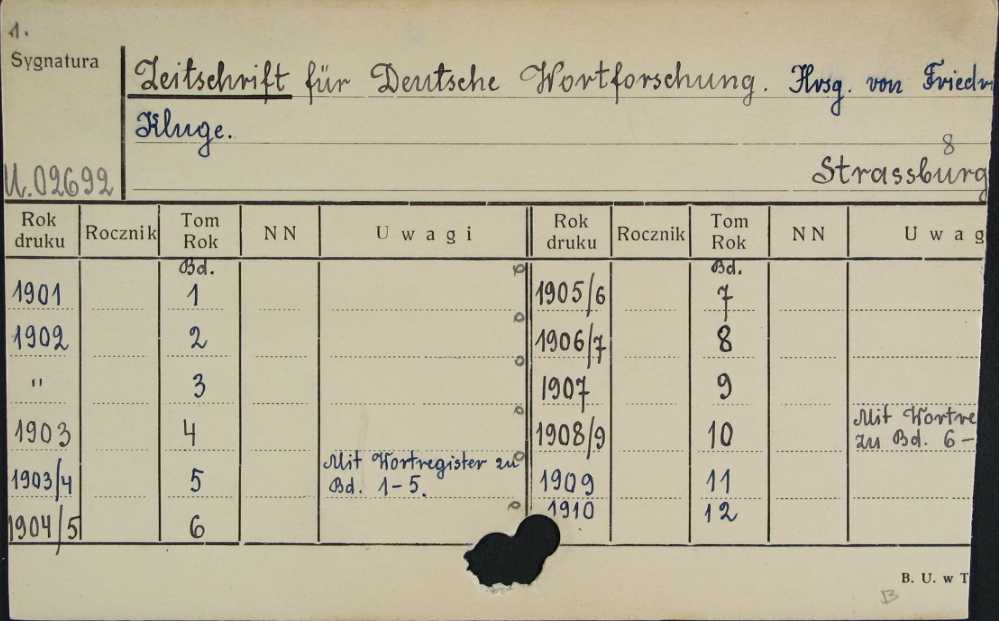 1.
Sygnatura
Zeitschrift für Deutsche Wortforschung. Hrsg. von Friedr
Kluge.
8
Strassburg
U.02692
Rok druku Rocznik Tom Rok NN Uwagi Rok druku Rocznik Tom Rok NN Uwag
Bd. Bd.
1901 1 1905/6 7
1902 2 1906/7 8
" 3 1907 9
1903 4 1908/9 10 Mit Wortre
zu Bd. 6-
1903/4 5 Mit Wortregister zu
Bd. 1-5. 1909 11
1904/5 6 1910 12
B. U. w T
B